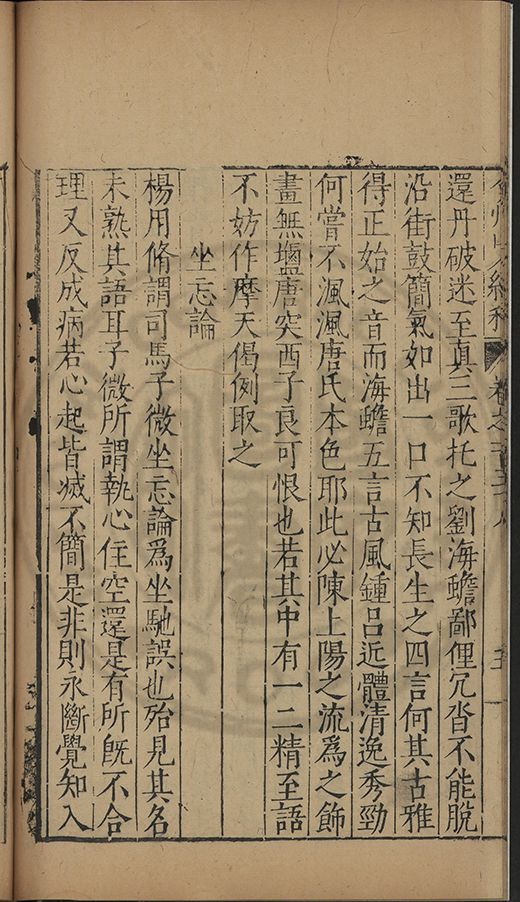 還丹破迷至真三歌托之劉海蟾鄙俚冗沓不能脫
沿街鼓簡氣如出一口不知長生之四言何其古雅
得正始之音而海蟾五言古風鍾呂近體清逸秀勁
何嘗不渢渢唐氏本色耶此必陳上陽之流爲之餙
畫無壚唐突西子良可恨也若其中有一二精至語
不妨作摩天偈例取之
坐忘論
楊用脩謂司馬子微坐忘論爲坐馳誤也殆見其名
未熟其語耳子微所謂執心住空還是有所旣不合
理又反成病若心起皆滅不簡是非則永斷覺知入